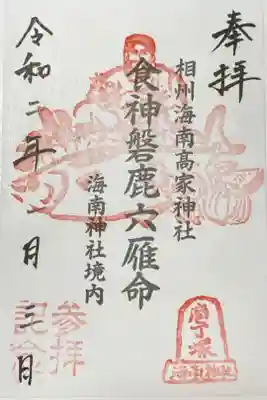 奉拝
相州海南高家神社
食神磐鹿六雁命
海南神社境内
令和二年 月三日
参拝記念
庖丁塚
海南神社